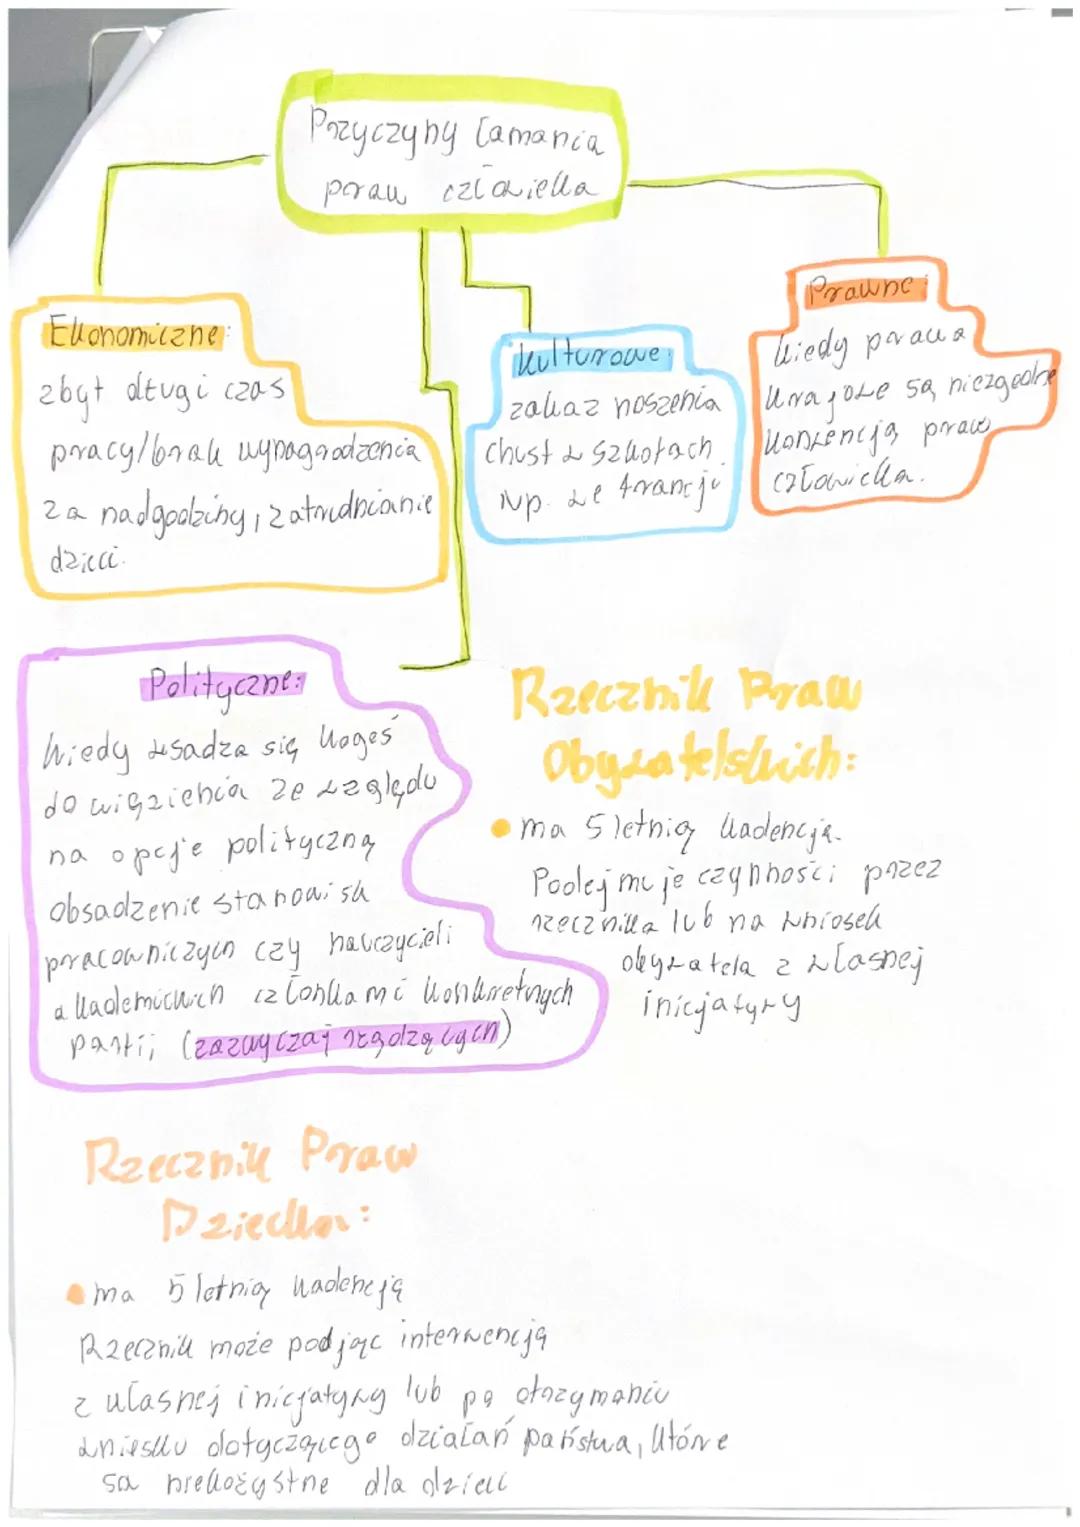 Przyczyny łamania
praw człowieka
Ekonomiczne:
zbyt długi czas
pracy/brak wynagrodzenia
za nadgodziny, zatrudnianie
dzieci.
Kulturowe:
zakaz noszenia
chust w szkołach
Np. we francji
Prawne:
kiedy prawa
krajowe są niezgodne
konwencją praw
człowieka.
Polityczne:
kiedy wsadza się kogoś
do więzienia ze względu
na opcje polityczną
obsadzenie stanowisk
pracowniczych czy nauczycieli
akademickich członkami konkretnych
partii (zazwyczaj rządzących)
Rzecznik Praw
Obywatelskich:
ma 5 letnią kadencję.
Podejmuje czynności przez
rzecznika lub na wniosek
obywatela z własnej
inicjatywy
Rzecznik Praw
Dziecka:
ma 5 letnią kadencję
Rzecznik może podjąć interwencję
z własnej inicjatywy lub po otrzymaniu
wniosku dotyczącego działań państwa, które
są niekożystne dla dzieci